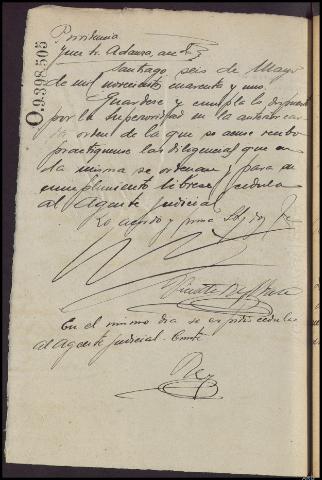 Providencia
Juez Sr. Adanza, acctal
O.9.398.505
Santiago seis de Mayo
de mil novecientos cuarenta y uno.
Guardese y cumpla lo dispuesto
por la superioridad en la anterior car
ta orden de la que se acuse recibo
practiquense las diligencias que en
la misma se ordenan y para su
cumplimiento librese cedula
al Agente Judicial
Lo acordó y firma Sª doy fe
En el mismo dia se expidió cedula
al Agente Judicial. Conste
Rey